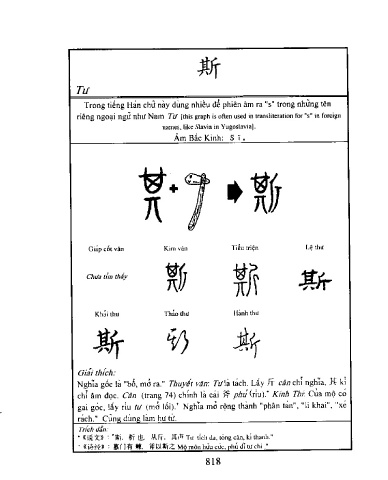 斯
Tư
Trong tiếng Hán chữ này dùng nhiều để phiên âm ra "s" trong những tên
riêng ngoại ngữ như Nam Tư [this graph is often used in transliteration for "s" in foreign
names, like Slavia in Yugoslavia].
Âm Bắc Kinh: S ī.
Giáp cốt văn Kim văn Tiểu triện Lệ thư
Chưa tìm thấy
斯
Khải thư Thảo thư Hành thư
斯 斯
Giải thích:
Nghĩa gốc là "bổ, mở ra." Thuyết văn: Tư là tách. Lấy 斤 cân chỉ nghĩa, 其 kì
chỉ âm đọc. Cân (trang 74) chính là cái 斧 phủ (rìu).' Kinh Thi: Cửa mộ có
gai góc, lấy rìu tư (mở lối).' Nghĩa mở rộng thành "phân tán", "li khai", "xé
rách." Cũng dùng làm hư từ.
Trích dẫn:
《说文》: "斯，析也，从斤，其声 Tư tích dã, tòng cân, kì thanh."
《诗经》: 墓门有棘，斧以斯之 Mộ môn hữu cức, phủ dĩ tư chi."
818